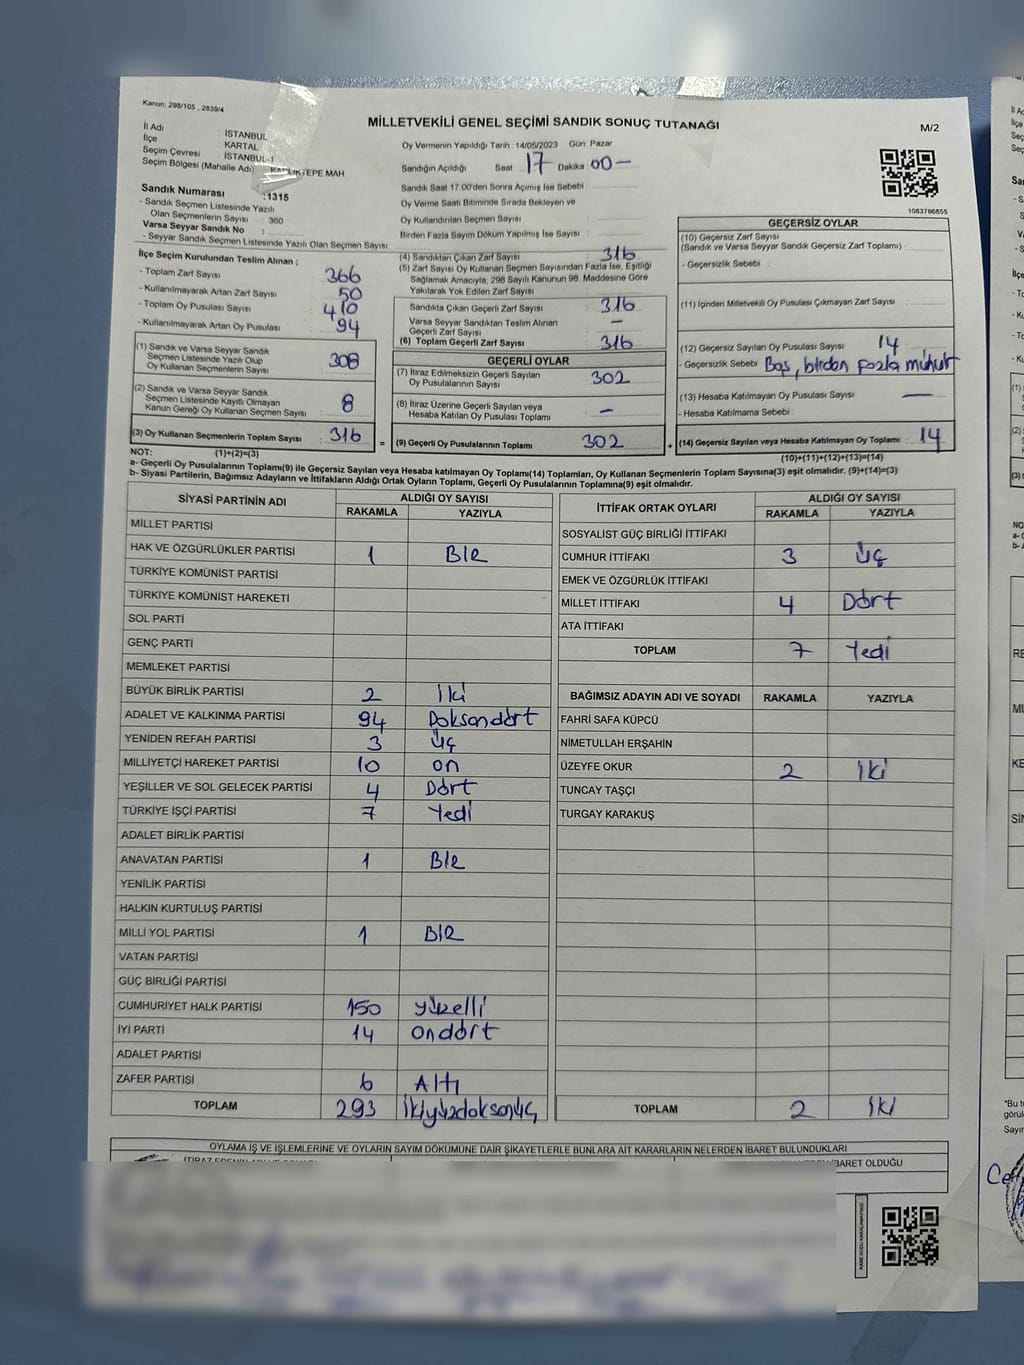 Kanun: 298/105 , 2839/4
MİLLETVEKİLİ GENEL SEÇİMİ SANDIK SONUÇ TUTANAĞI
M/2
İl Adı : İSTANBUL
İlçe : KARTAL
Seçim Çevresi : İSTANBUL-1
Seçim Bölgesi (Mahalle Adı)
Oy Vermenin Yapıldığı Tarih : 14/05/2023 Gün: Pazar
Sandığın Açıldığı Saat 17 Dakika 00-
Sandık Numarası : 1315
- Sandık Seçmen Listesinde Yazılı
Olan Seçmenlerin Sayısı : 360
Varsa Seyyar Sandık No :
- Seyyar Sandık Seçmen Listesinde Yazılı Olan Seçmen Sayısı
Sandık Saat 17.00'den Sonra Açımış İse Sebebi
Oy Verme Saati Bitiminde Sırada Bekleyen ve
Oy Kullandırılan Seçmen Sayısı
Birden Fazla Sayım Döküm Yapılmış İse Sayısı :
1083766855
İlçe Seçim Kurulundan Teslim Alınan ;
- Toplam Zarf Sayısı : 366
- Kullanılmayarak Artan Zarf Sayısı : 50
- Toplam Oy Pusulası Sayısı : 410
- Kullanılmayarak Artan Oy Pusulası : 94
(1) Sandık ve Varsa Seyyar Sandık
Seçmen Listesinde Yazılı Olup
Oy Kullanan Seçmenlerin Sayısı : 308
(2) Sandık ve Varsa Seyyar Sandık
Seçmen Listesinde Kayıtlı Olmayan
Kanun Gereği Oy Kullanan Seçmen Sayısı : 8
(3) Oy Kullanan Seçmenlerin Toplam Sayısı : 316
(4) Sandıktan Çıkan Zarf Sayısı : 316
(5) Zarf Sayısı Oy Kullanan Seçmen Sayısından Fazla İse, Eşitliği
Sağlamak Amacıyla, 298 Sayılı Kanunun 98. Maddesine Göre
Yakılarak Yok Edilen Zarf Sayısı
Sandıkta Çıkan Geçerli Zarf Sayısı : 316
Varsa Seyyar Sandıktan Teslim Alınan
Geçerli Zarf Sayısı : -
(6) Toplam Geçerli Zarf Sayısı : 316
GEÇERLİ OYLAR
(7) İtiraz Edilmeksizin Geçerli Sayılan
Oy Pusulalarının Sayısı : 302
(8) İtiraz Üzerine Geçerli Sayılan veya
Hesaba Katılan Oy Pusulası Toplamı : -
= (9) Geçerli Oy Pusulalarının Toplamı : 302
GEÇERSİZ OYLAR
(10) Geçersiz Zarf Sayısı
(Sandık ve Varsa Seyyar Sandık Geçersiz Zarf Toplamı) :
- Geçersizlik Sebebi :
(11) İçinden Milletvekili Oy Pusulası Çıkmayan Zarf Sayısı :
(12) Geçersiz Sayılan Oy Pusulası Sayısı : 14
- Geçersizlik Sebebi : Boş, birden fazla mühür
(13) Hesaba Katılmayan Oy Pusulası Sayısı : —
- Hesaba Katılmama Sebebi :
+ (14) Geçersiz Sayılan veya Hesaba Katılmayan Oy Toplamı : 14
NOT: (1)+(2)=(3)
(10)+(11)+(12)+(13)=(14)
a- Geçerli Oy Pusulalarının Toplamı(9) ile Geçersiz Sayılan veya Hesaba katılmayan Oy Toplamı(14) Toplamları, Oy Kullanan Seçmenlerin Toplam Sayısına(3) eşit olmalıdır. (9)+(14)=(3)
b- Siyasi Partilerin, Bağımsız Adayların ve İttifakların Aldığı Ortak Oyların Toplamı, Geçerli Oy Pusulalarının Toplamına(9) eşit olmalıdır.
SİYASİ PARTİNİN ADI ALDIĞI OY SAYISI
RAKAMLA YAZIYLA
MİLLET PARTİSİ
HAK VE ÖZGÜRLÜKLER PARTİSİ 1 BİR
TÜRKİYE KOMÜNİST PARTİSİ
TÜRKİYE KOMÜNİST HAREKETİ
SOL PARTİ
GENÇ PARTİ
MEMLEKET PARTİSİ
BÜYÜK BİRLİK PARTİSİ 2 İki
ADALET VE KALKINMA PARTİSİ 94 Doksandört
YENİDEN REFAH PARTİSİ 3 üç
MİLLİYETÇİ HAREKET PARTİSİ 10 on
YEŞİLLER VE SOL GELECEK PARTİSİ 4 Dört
TÜRKİYE İŞÇİ PARTİSİ 7 Yedi
ADALET BİRLİK PARTİSİ
ANAVATAN PARTİSİ 1 BİR
YENİLİK PARTİSİ
HALKIN KURTULUŞ PARTİSİ
MİLLİ YOL PARTİSİ 1 BİR
VATAN PARTİSİ
GÜÇ BİRLİĞİ PARTİSİ
CUMHURİYET HALK PARTİSİ 150 yüzelli
İYİ PARTİ 14 ondört
ADALET PARTİSİ
ZAFER PARTİSİ 6 Altı
TOPLAM 293 İkiyüzdoksanüç
İTTİFAK ORTAK OYLARI ALDIĞI OY SAYISI
RAKAMLA YAZIYLA
SOSYALİST GÜÇ BİRLİĞİ İTTİFAKI
CUMHUR İTTİFAKI 3 Üç
EMEK VE ÖZGÜRLÜK İTTİFAKI
MİLLET İTTİFAKI 4 Dört
ATA İTTİFAKI
TOPLAM 7 Yedi
BAĞIMSIZ ADAYIN ADI VE SOYADI RAKAMLA YAZIYLA
FAHRİ SAFA KÜPCÜ
NİMETULLAH ERŞAHİN
ÜZEYFE OKUR 2 İki
TUNCAY TAŞÇI
TURGAY KARAKUŞ
TOPLAM 2 İki
OYLAMA İŞ VE İŞLEMLERİNE VE OYLARIN SAYIM DÖKÜMÜNE DAİR ŞİKAYETLERLE BUNLARA AİT KARARLARIN NELERDEN İBARET BULUNDUKLARI
İBARET OLDUĞU